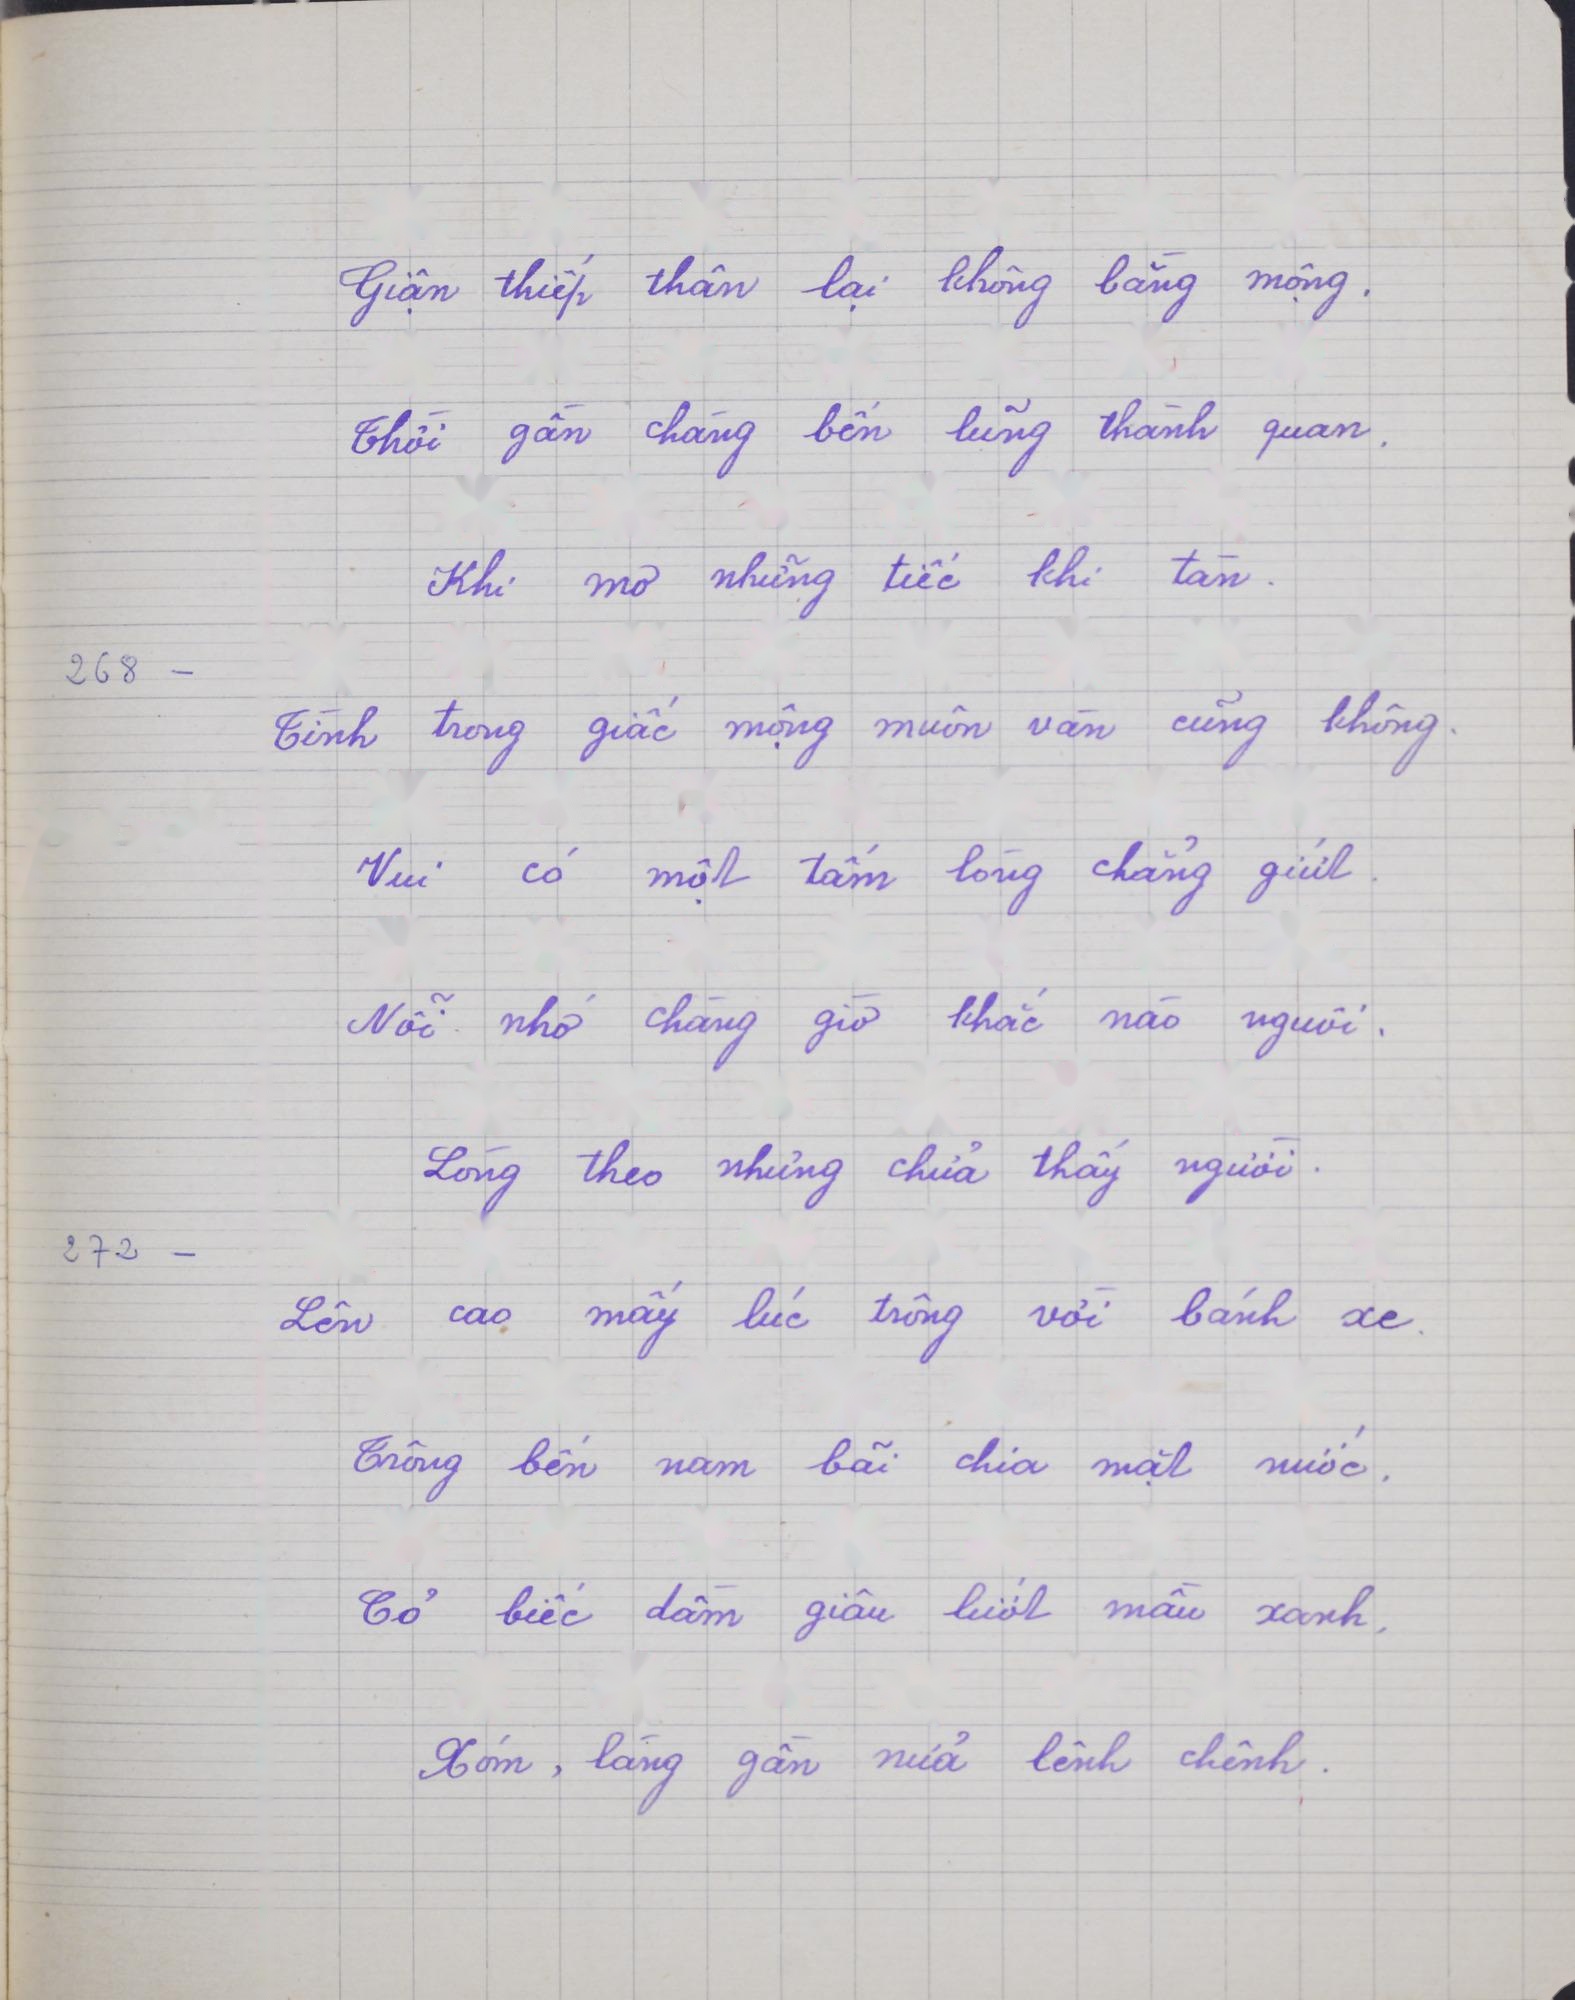 Giận thiếp thân lại không bằng mộng.
Thôi gần chàng bến lũng thành quan.
Khi mơ những tiếc khi tàn.
268 –
Tình trong giấc mộng muôn vàn cũng không.
Vui có một tấm lòng chẳng giứt.
Nỗi nhớ chàng giờ khắc nào nguôi.
Lòng theo nhưng chửa thấy người.
272 –
Lên cao mấy lúc trông vời bánh xe.
Trông bến nam bãi chia mặt nước.
Cỏ biếc dầm giâu lướt mầu xanh.
Xóm, làng gần nửa lênh chênh.